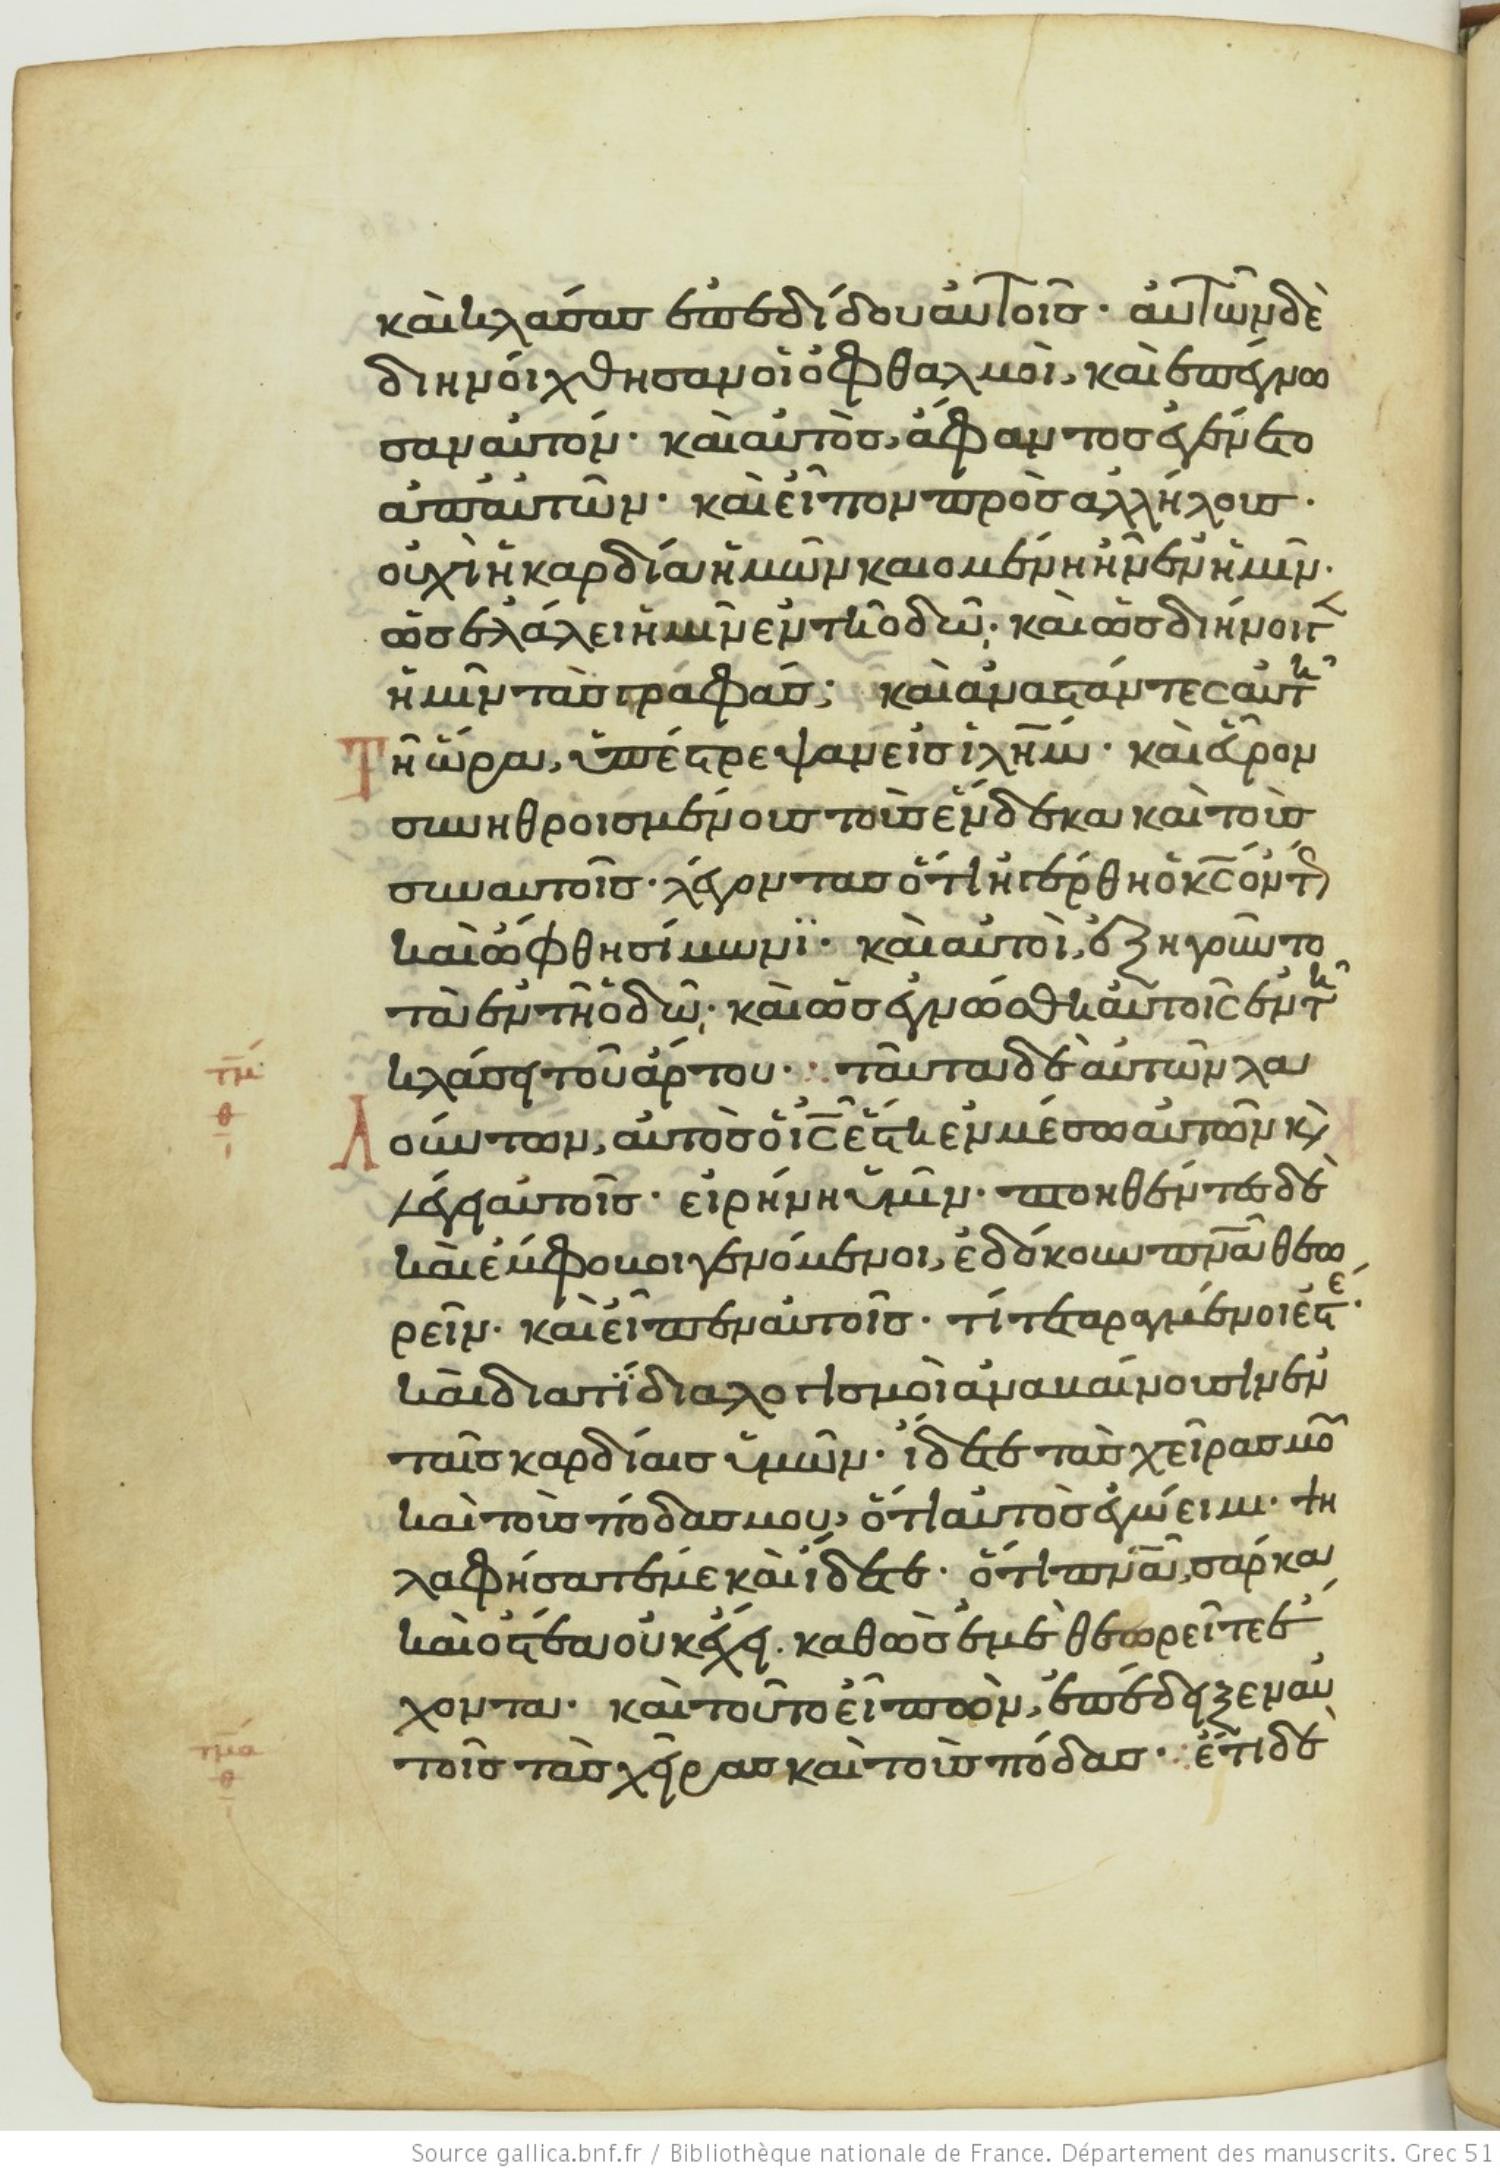 καὶ κλάσας ἐπεδίδου αὐτοῖς· αὐτῶν δὲ
διηνοίχθησαν οἱ ὀφθαλμοὶ, καὶ ἐπέγνω
σαν αὐτόν· καὶ αὐτὸς, ἄφαντος ἐγένετο
ἀπ' αὐτῶν· καὶ εἶπον πρὸς ἀλλήλους·
οὐχὶ ἡ καρδία ἡμῶν καιομένη ἦν ἐν ἡμῖν·
ὡς ἐλάλει ἡμῖν ἐν τῆ ὁδῶ; καὶ ὡς διήνοιγ
ἡμῖν τὰς γραφάς; καὶ ἀναστάντες αὐτῆ
τῆ ὥρα, ὑπέστρεψαν εἰς ἰλημ· καὶ εὗρον
συνηθροισμένους τοὺς ἕνδεκα καὶ τοὺς
σὺν αὐτοῖς· λέγοντας ὅτι ἠγέρθη ὁ κς ὄντ
καὶ ὤφθη σίμωνϊ· καὶ αὐτοὶ, ἐξηγοῦντο
τὰ ἐν τῆ ὁδῶ; καὶ ὡς ἐγνώσθη αὐτοῖς ἐν τῆ
κλάσει τοῦ ἄρτου· ταῦτα δὲ αὐτῶν λα
λούντων, αὐτὸς ὁ ις ἔστη ἐν μέσω αὐτῶν κ
λέγει αὐτοῖς· εἰρήνη ὑμῖν· πτοηθέντες δὲ
καὶ ἔμφοβοι γενόμενοι, ἐδόκουν πνα θεω
ρεῖν· καὶ εἶπεν αὐτοῖς· τί τεταραγμένοι ἐστέ·
καὶ διατί διαλογισμοὶ ἀναβαίνουσιν ἐν
ταῖς καρδίαις ὑμῶν· ἴδετε τὰς χεῖρας μου
καὶ τοὺς πόδας μου, ὅτι αὐτὸς ἐγώ εἰμι· ψη
λαφήσατέ με καὶ ἴδετε· ὅτι πνα, σάρκα
καὶ ὀστέα οὐκ ἔχει· καθὼς ἐμὲ θεωρεῖτε ἔ
χοντα· καὶ τοῦτο εἰπὼν, ἐπέδειξεν αὐ
τοῖς τὰς χεῖρας καὶ τοὺς πόδας· ἔτι δὲ
τμ
θ
ι
τμα
θ
ι
Source gallica.bnf.fr / Bibliothèque nationale de France. Département des manuscrits. Grec 51